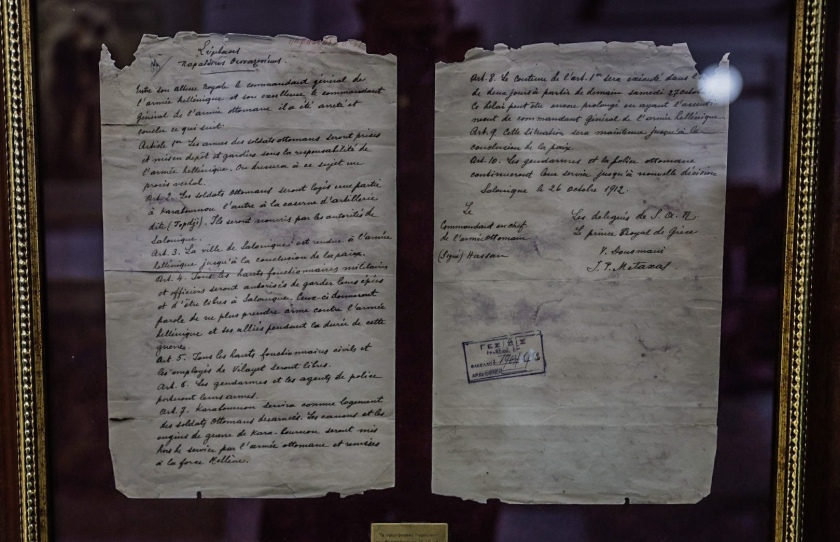 Entre son altesse royale le commandant général de
l'armée hellénique et son excellence le commandant
général de l'armée ottomane il a été arrêté et
conclu ce qui suit.
Article 1er Les armes des soldats ottomans seront prises
et mises en dépôt et gardées sous la responsabilité de
l'armée hellénique. On dressera à ce sujet un
procès verbal.
Art. 2. Les soldats ottomans seront logés une partie
à Karabournou l'autre à la caserne d'artillerie
dite (Topdji). Ils seront nourris par les autorités de
Salonique.
Art. 3. La ville de Salonique est rendue à l'armée
hellénique jusqu'à la conclusion de la paix.
Art. 4. Tous les hauts fonctionnaires militaires
et officiers seront autorisés de garder leurs épées
et d'être libres à Salonique. Ceux-ci donneront
parole de ne plus prendre arme contre l'armée
hellénique et ses alliés pendant la durée de cette
guerre.
Art. 5. Tous les hauts fonctionnaires civils et
les employés de Vilayet seront libres.
Art. 6. Les gendarmes et les agents de police
porteront leurs armes.
Art. 7. Karabournou servira comme logement
des soldats Ottomans désarmés. Les canons et les
engins de guerre de Kara-bournou seront mis
hors de service par l'armée ottomane et remises
à la force Hellène.
Art. 8. Le contenu de l'art. 1er sera exécuté dans l
de deux jours à partir de demain samedi 27 octob
Ce délai peut être encore prolongé en ayant l'assenti-
ment de commandant général de l'armée hellénique
Art. 9. Cette situation sera maintenue jusqu'à la
conclusion de la paix.
Art. 10. Les gendarmes et la police ottomane
continueront leur service jusqu'à nouvelle décision
Salonique le 26 octobre 1912.
Le
Commandant en chef
de l'armée Ottomane
(Signé) Hassan
Les délégués de S. A. R
Le prince Royal de Grèce
V. Dousmani
J. P. Metaxas
ΓΕΣ/ΔΙΣ